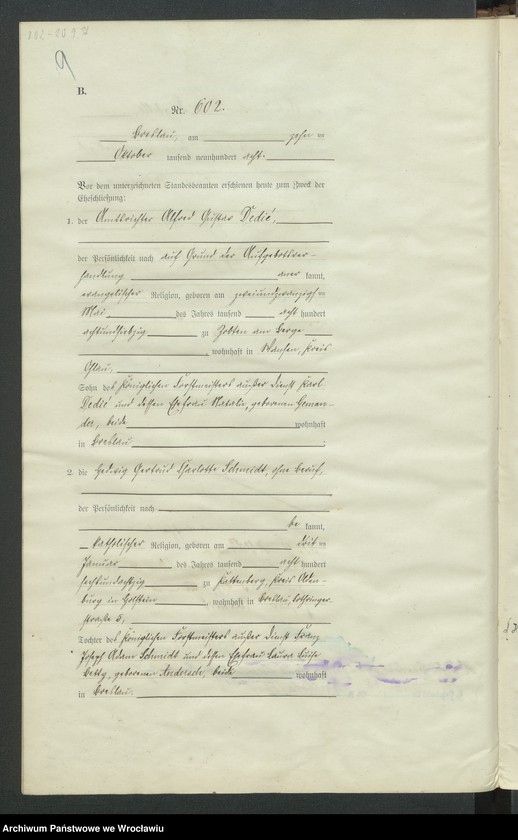 9
B.
Nr. 602.
Breslau, am zehnten
Oktober tausend neunhundert acht.
Vor dem unterzeichneten Standesbeamten erschienen heute zum Zweck der
Eheschließung:
1. der Amtsrichter Alfred Gustav Dedié,
der Persönlichkeit nach auf Grund der Aufgebotsver-
handlung aner kannt,
evangelischer Religion, geboren am zweiundzwanzigsten
Mai des Jahres tausend acht hundert
achtundsiebzig zu Zobten am Berge
, wohnhaft in Wansen, Kreis
Ohlau,
Sohn des Königlichen Forstmeisters außer Dienst Karl
Dedié und dessen Ehefrau Natalie, geborenen
beide wohnhaft
in Breslau.
2. die Hedwig Gertrud Charlotte Schmidt, ohne Beruf,
der Persönlichkeit nach
be kannt,
katholischer Religion, geboren am dritten
Januar des Jahres tausend acht hundert
sechsundachtzig zu Kreis Olden-
burg in Holstein, wohnhaft in Breslau, Lothringer-
straße 5,
Tochter des Königlichen Forstmeisters außer Dienst Franz
Joseph Adam Schmidt und dessen Ehefrau Laura Luise
Betty, geborenen beide wohnhaft
in Breslau.
Archiwum Państwowe we Wrocławiu